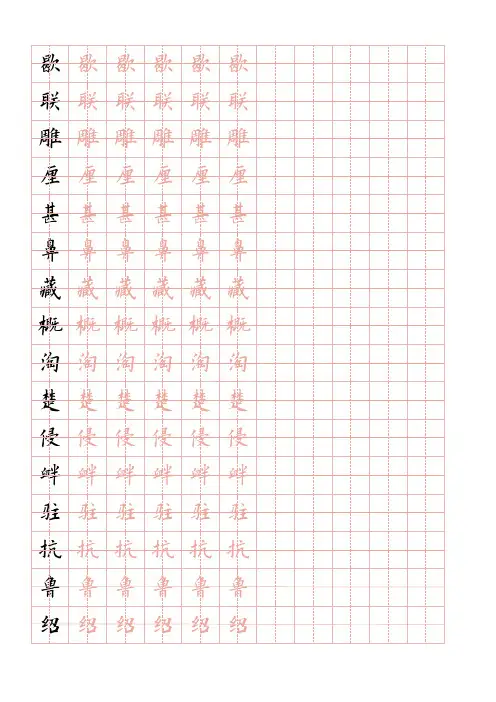 歇歇歇歇歇歇
联联联联联联
雕雕雕雕雕雕
厘厘厘厘厘厘
甚甚甚甚甚甚
鼻鼻鼻鼻鼻鼻
藏藏藏藏藏藏
概概概概概概
淘淘淘淘淘淘
楚楚楚楚楚楚
侵侵侵侵侵侵
衅衅衅衅衅衅
驻驻驻驻驻驻
抗抗抗抗抗抗
鲁鲁鲁鲁鲁鲁
绍绍绍绍绍绍